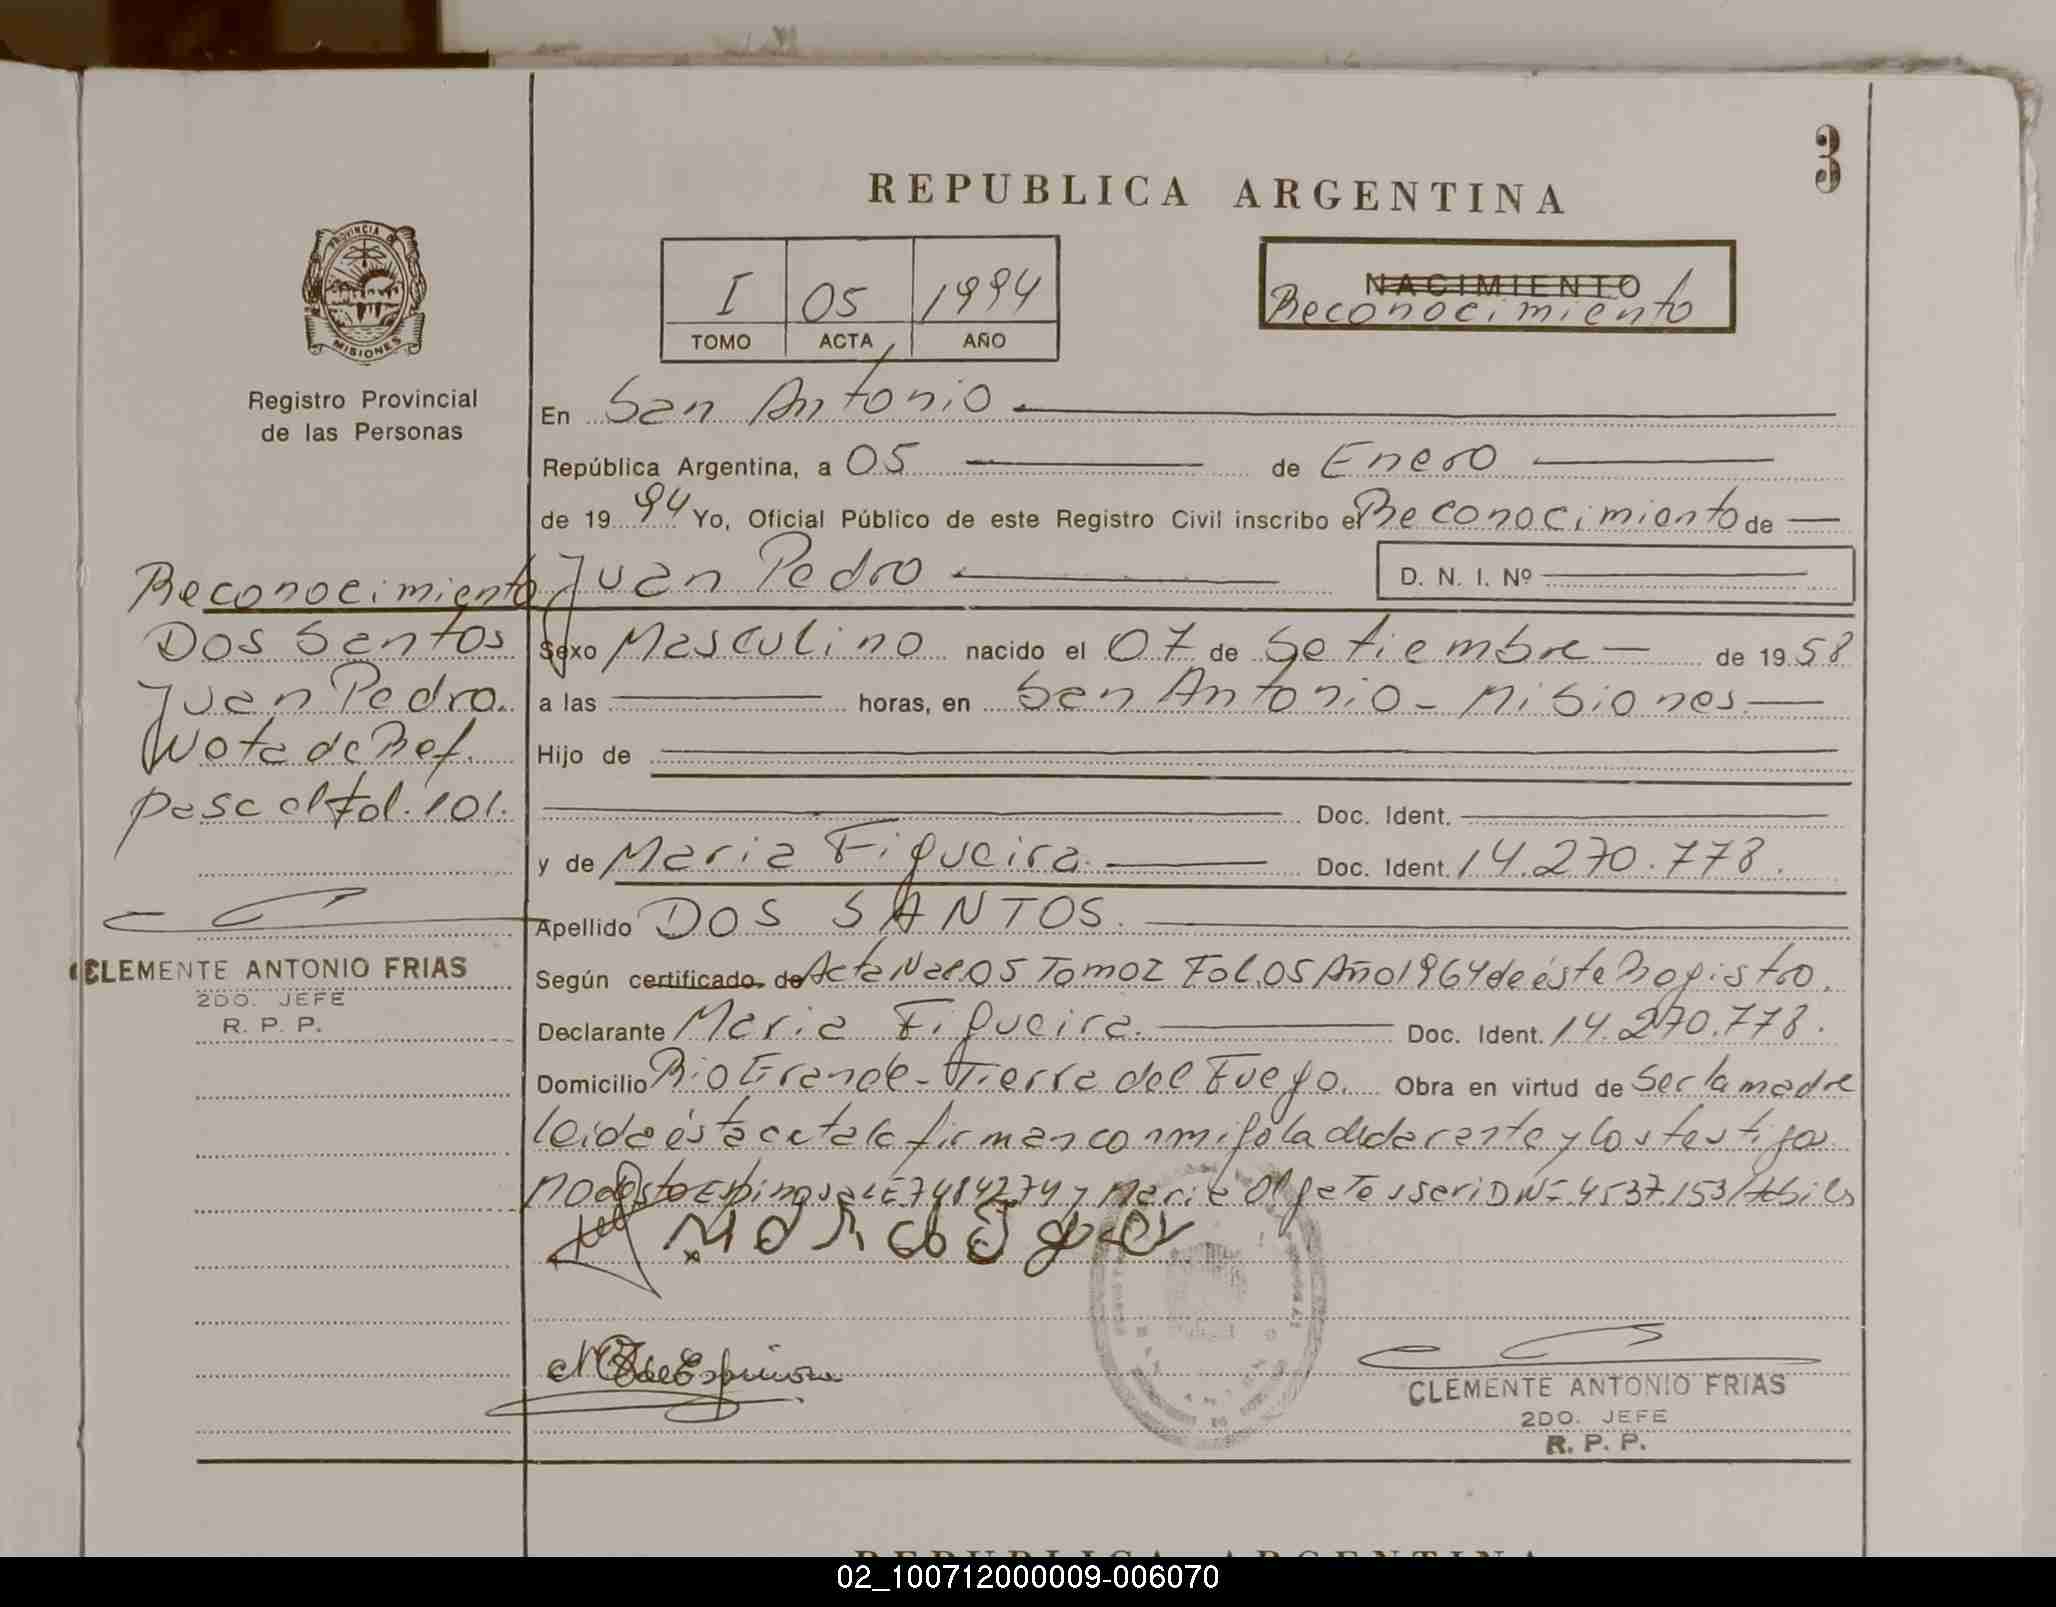 3
REPUBLICA ARGENTINA
PROVINCIA DE
MISIONES
Registro Provincial
de las Personas
I 05 1994
TOMO ACTA AÑO
NACIMIENTO
Reconocimiento
En San Antonio
República Argentina, a 05 de Enero
de 1994 Yo, Oficial Público de este Registro Civil inscribo el Reconocimiento de
Juan Pedro D. N. I. Nº
Sexo Masculino nacido el 07 de Setiembre de 1958
a las horas, en San Antonio - Misiones
Hijo de
Doc. Ident.
y de Maria Figueira. Doc. Ident. 14.270.778.
Apellido DOS SANTOS.
Según certificado de Acta Nac 05 Tomo I Fol. 05 Año 1964 de éste Registro.
Declarante Maria Figueira. Doc. Ident. 14.270.778.
Domicilio Rio Grande - Tierra del Fuego. Obra en virtud de ser la madre
leida ésta acta la firman conmigo la declarante y los testigos
Modesto Espinosa LE 7484274 y Maria Olga DNI 4537.153
Reconocimiento
Dos Santos
Juan Pedro.
Nota de Ref.
pasa al fol. 101.
CLEMENTE ANTONIO FRIAS
2DO. JEFE
R. P. P.
CLEMENTE ANTONIO FRIAS
2DO. JEFE
R. P. P.
REPUBLICA ARGENTINA
02_100712000009-006070